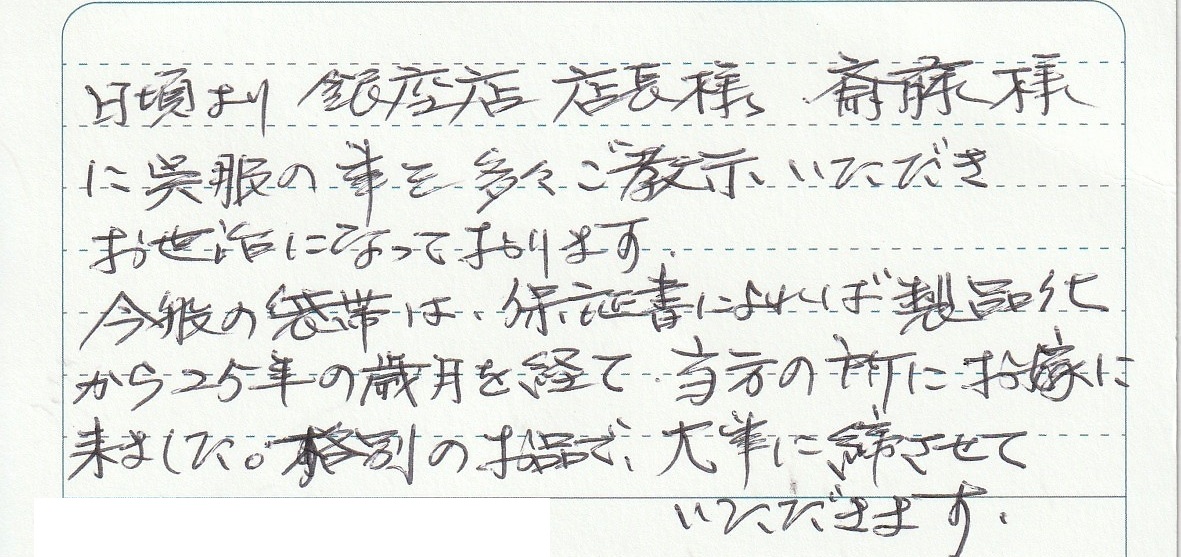 日頃より 銀座店 店長様、斎藤様
に呉服の事を多々ご教示、いただき
お世話になっております。
今般の袋帯は、保証書によれば製品化
から25年の歳月を経て、当方の所にお嫁に
来ました。格別のお品で、大事に締させて
いただきます。